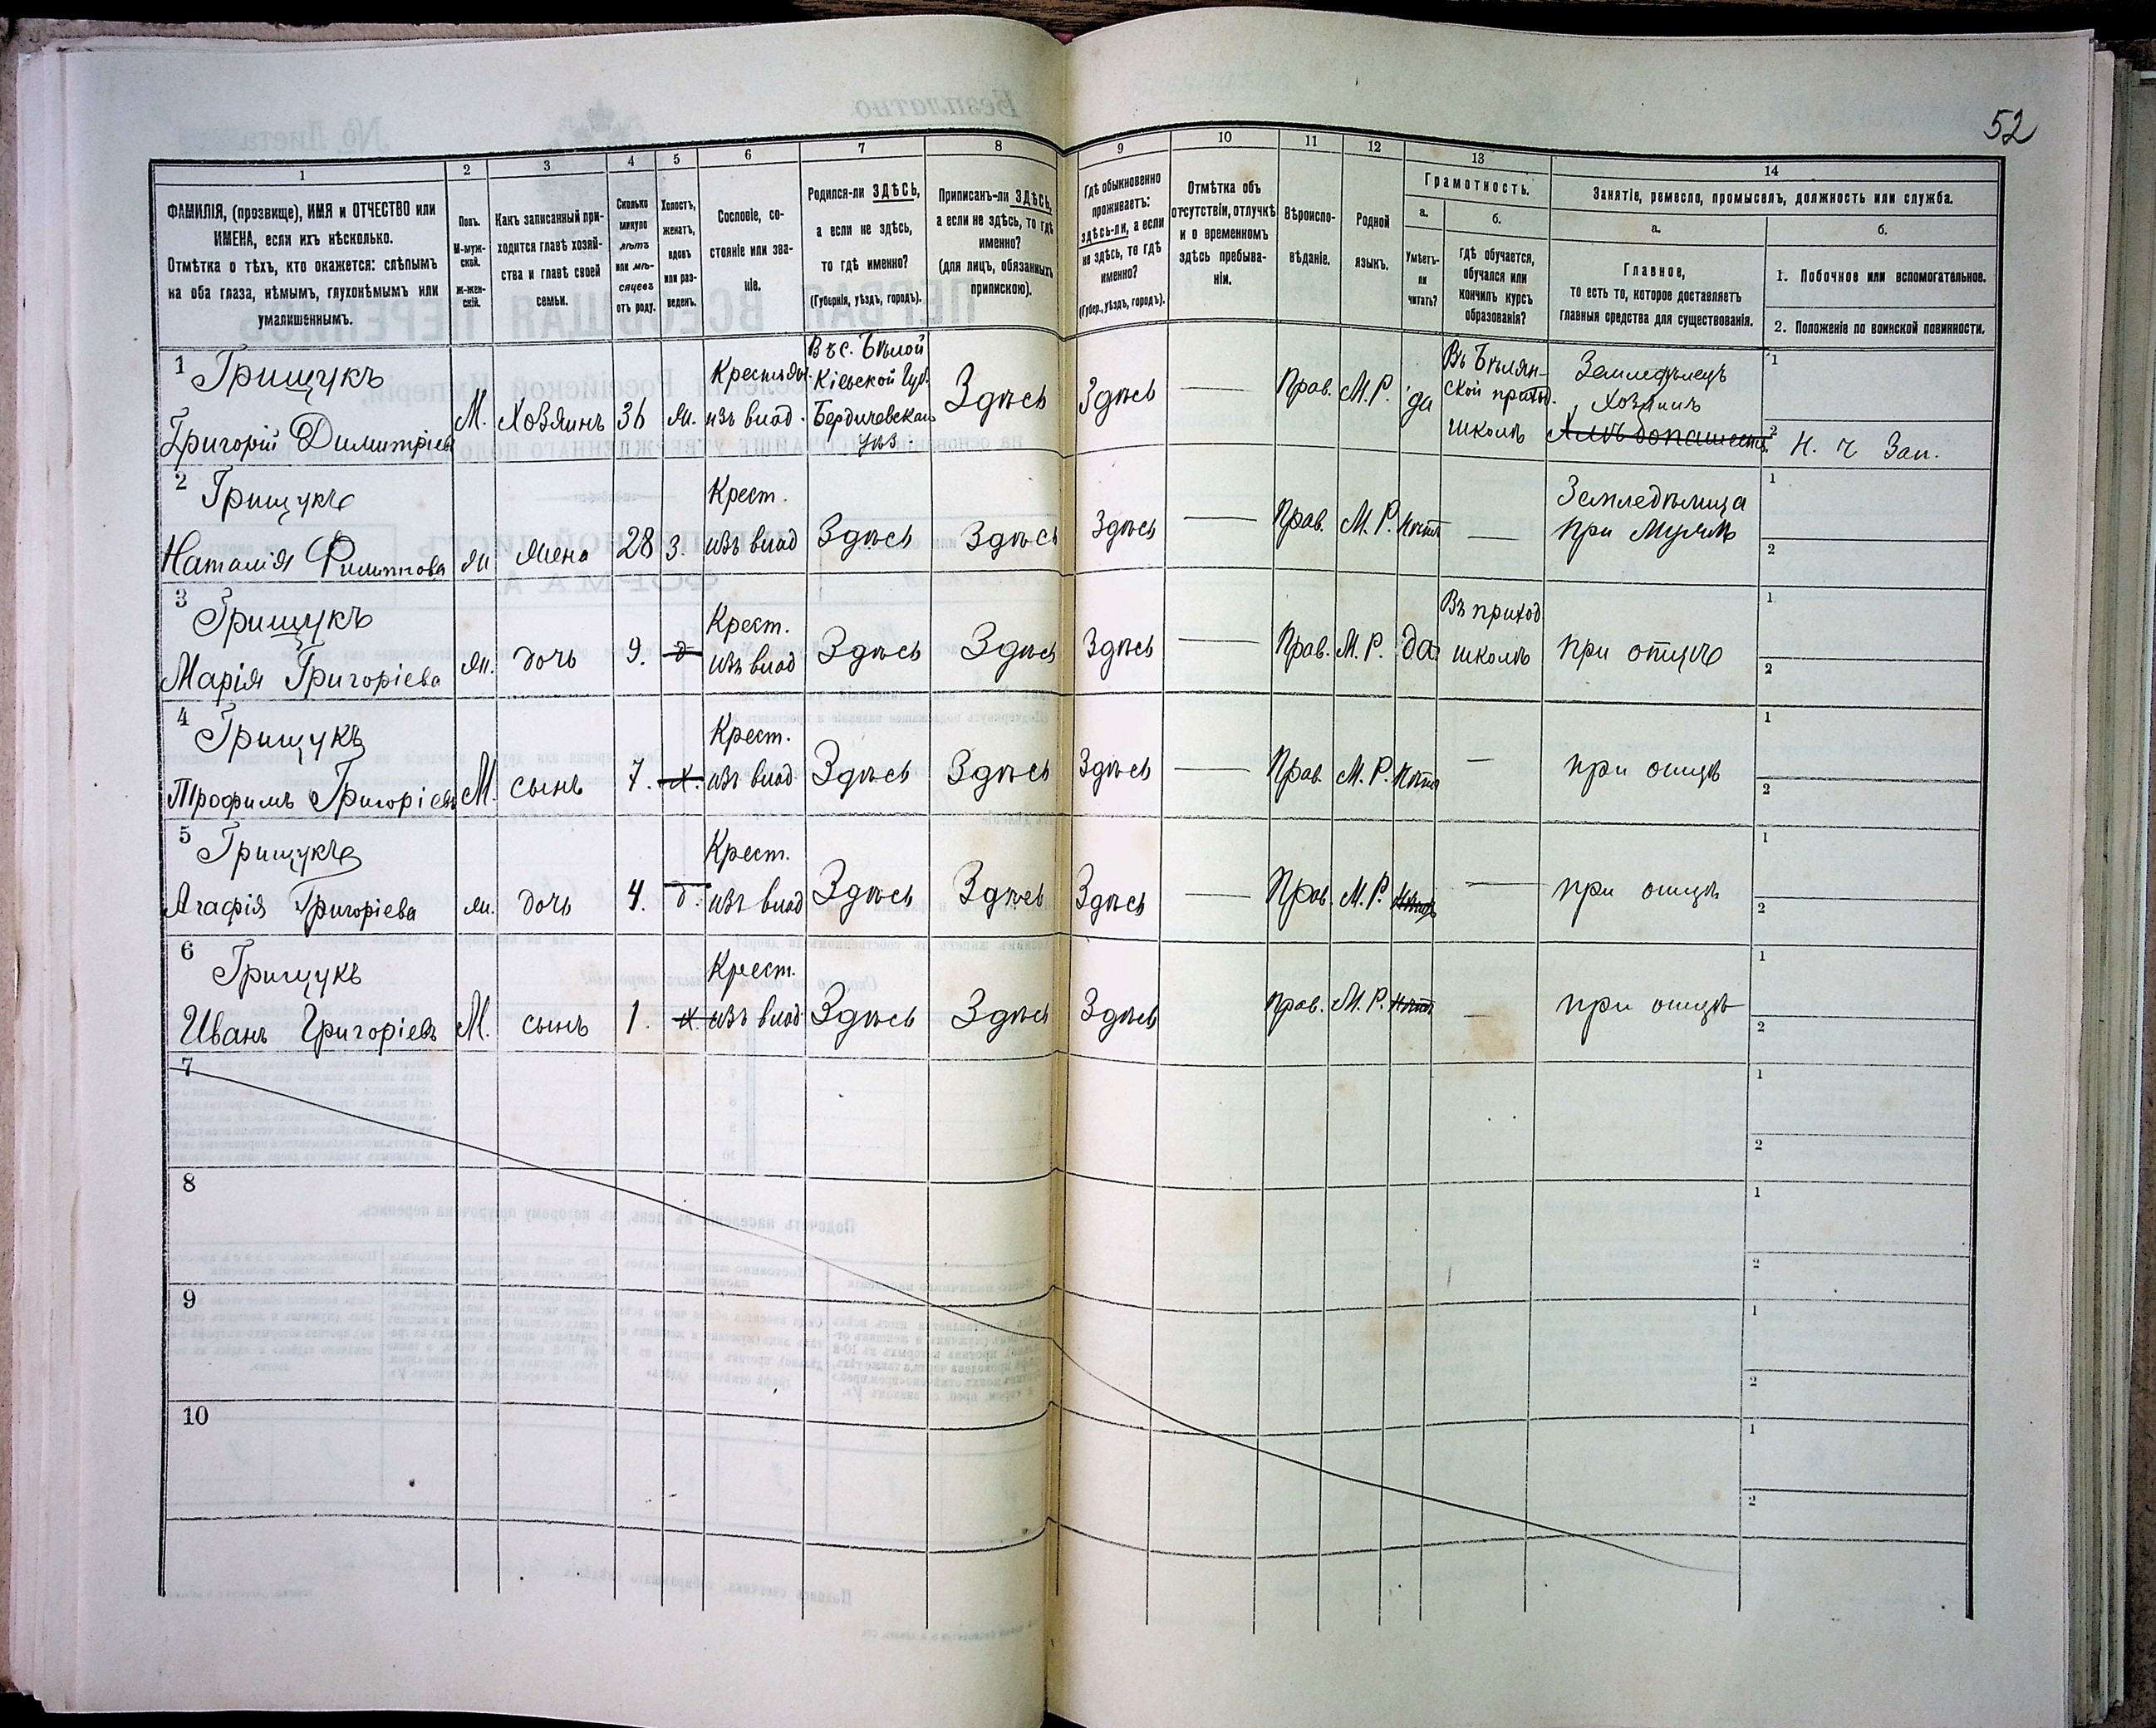 52
1 2 3 4 5 6 7 8 9 10 11 12 13 14
ФАМИЛІЯ, (прозвище), ИМЯ и ОТЧЕСТВО или
ИМЕНА, если ихъ нѣсколько.
Отмѣтка о тѣхъ, кто окажется: слѣпымъ
на оба глаза, нѣмымъ, глухонѣмымъ или
умалишеннымъ.
Полъ.
М-муж-
ской.
Ж-жен-
скій.
Какъ записанный при-
ходится главѣ хозяй-
ства и главѣ своей
семьи.
Сколько
минуло
лѣтъ
или мѣ-
сяцевъ
отъ роду.
Холостъ,
женатъ,
вдовъ
или раз-
веденъ.
Сословіе, со-
стояніе или зва-
ніе.
Родился-ли ЗДѢСЬ,
а если не здѣсь,
то гдѣ именно?
(Губернія, уѣздъ, городъ).
Приписанъ-ли ЗДѢСЬ,
а если не здѣсь, то гдѣ
именно?
(для лицъ, обязанныхъ
припискою).
Гдѣ обыкновенно
проживаетъ:
здѣсь-ли, а если
не здѣсь, то гдѣ
именно?
(Губер., уѣздъ, городъ).
Отмѣтка объ
отсутствіи, отлучкѣ
и о временномъ
здѣсь пребыва-
ніи.
Вѣроиспо-
вѣданіе.
Родной
языкъ.
Грамотность.
а.
Умѣетъ-
ли
читать?
б.
гдѣ обучается,
обучался или
кончилъ курсъ
образованія?
Занятіе, ремесло, промыселъ, должность или служба.
а.
Главное,
то есть то, которое доставляетъ
главныя средства для существованія.
б.
1. Побочное или вспомогательное.
2. Положеніе по воинской повинности.
1 Грищукъ
Григорій Димитріев
М. Хозяинъ 36 ж.
Крестьян.
изъ влад.
Въ с. Бѣлой
Кіевской Губ.
Бердичевскаго
уѣз.
Здѣсь Здѣсь — Прав. М.Р. да
Въ Бѣлян-
ской приход.
школѣ
Земледѣлецъ
Хозяинъ
1
2 Н. Ч Зап.
2 Грищукъ
Наталія Филиппова
ж жена 28 З.
Крест.
изъ влад
Здѣсь Здѣсь Здѣсь — Прав. М.Р. нѣтъ —
Земледѣлица
при мужѣ
1
2
3 Грищукъ
Марія Григоріева
ж. дочь 9. д
Крест.
изъ влад
Здѣсь Здѣсь Здѣсь — Прав. М.Р. да
Въ приход
школѣ
при отцѣ
1
2
4 Грищукъ
Трофимъ Григоріевъ
М. сынъ 7. х.
Крест.
изъ влад
Здѣсь Здѣсь Здѣсь — Прав. М.Р. нѣтъ — при отцѣ
1
2
5 Грищукъ
Агафія Григоріева
ж. дочь 4. д.
Крест.
изъ влад
Здѣсь Здѣсь Здѣсь — Прав. М.Р. нѣтъ — при отцѣ
1
2
6 Грищукъ
Иванъ Григоріевъ
М. сынъ 1. х.
Крест.
изъ влад
Здѣсь Здѣсь Здѣсь Прав. М.Р. нѣтъ — при отцѣ
1
2
7
1
2
8
1
2
9
1
2
10
1
2